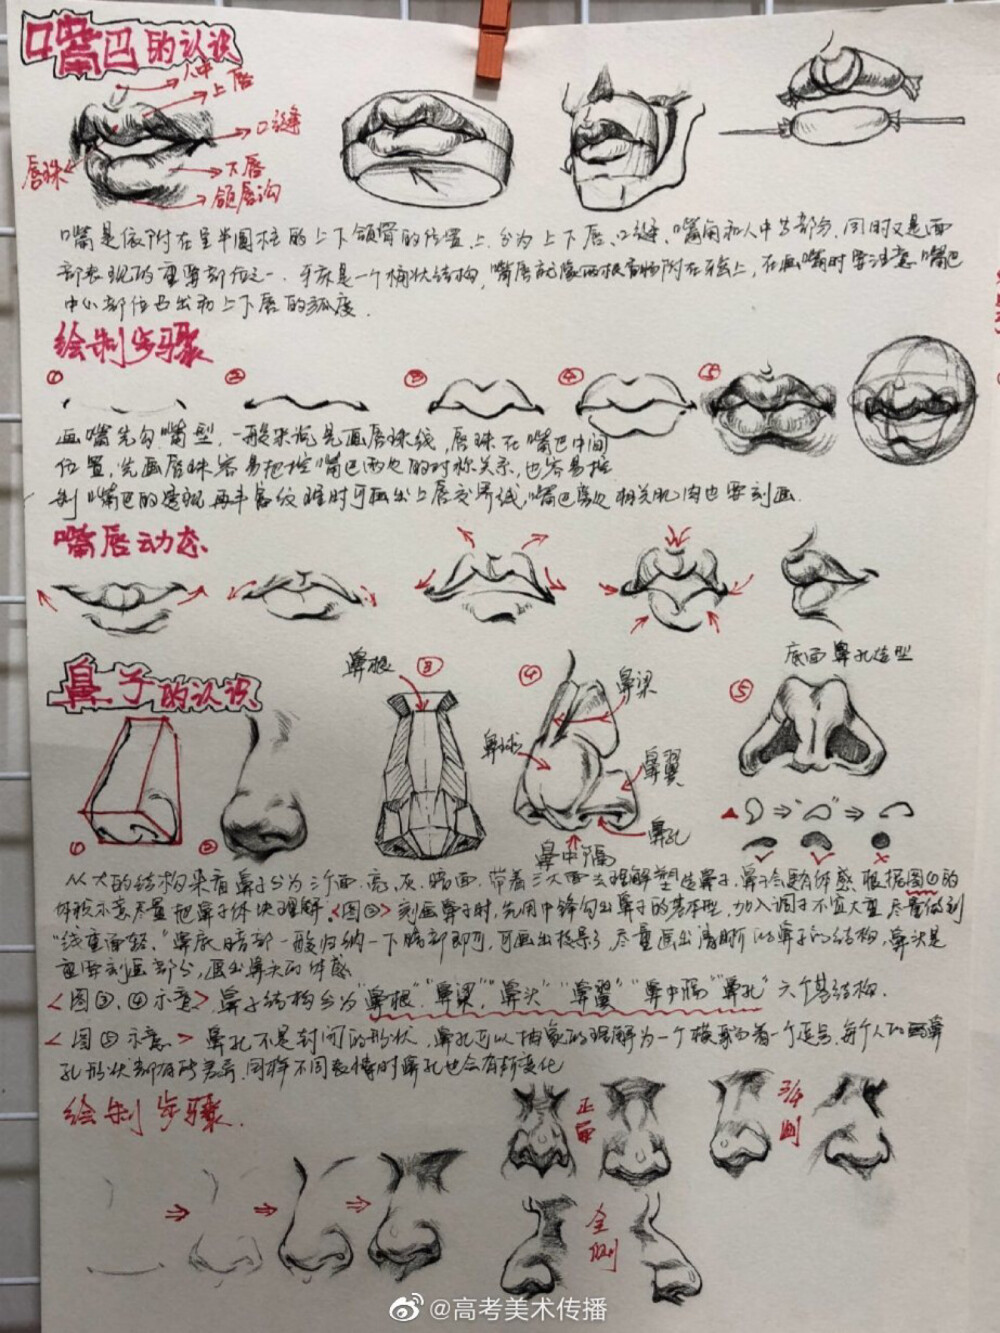 嘴巴的认识
人中
上唇
口缝
唇珠
下唇
颌唇沟
嘴是依附在呈半圆柱的上下颌骨的位置上.分为上下唇、口缝、嘴角和人中等部分.同时又是面
部表现的重要部位之一.牙床是一个桶状结构,嘴唇就像两根食物附在牙齿上,在画嘴时要注意嘴巴
中心部位凸出和上下唇的弧度.
绘制步骤
① ② ③ ④ ⑤
画嘴先勾嘴型,一般来说先画唇珠线,唇珠在嘴巴中间
位置.先画唇珠容易把控嘴巴两边的对称关系,也容易控
制嘴巴的透视.再丰富纹理时可画出上唇交界线,嘴巴旁边相关肌肉也要刻画.
嘴唇动态
鼻子的认识
鼻根
底面鼻孔造型
① ② ③ ④ ⑤
鼻梁
鼻球
鼻翼
鼻孔
鼻中隔
从大的结构来看鼻子分为三个面.亮、灰、暗面.带着三大面去理解塑造鼻子.鼻子会更有体感.根据图①的
体积示意尽量把鼻子体块理解.<图②>刻画鼻子时,先用中锋勾出鼻子的基本型,加入调子不宜太重.尽量做到
“线重面轻.”鼻底暗部一般归纳一下暗部即可,可画出投影.尽量画出清晰的鼻子的结构,鼻头是
重要刻画部分,画出鼻头的体感
<图③、④示意>鼻子结构分为“鼻根”“鼻梁”“鼻头”“鼻翼”“鼻中隔”“鼻孔”六个基结构.
<图⑤示意>鼻孔不是封闭的形状,鼻孔可以抽象的理解为一个横着的逗号.每个人的鼻
孔形状都有所差异.同样不同表情时鼻孔也会有所变化
绘制步骤.
正面
3/4侧
全侧
@高考美术传播